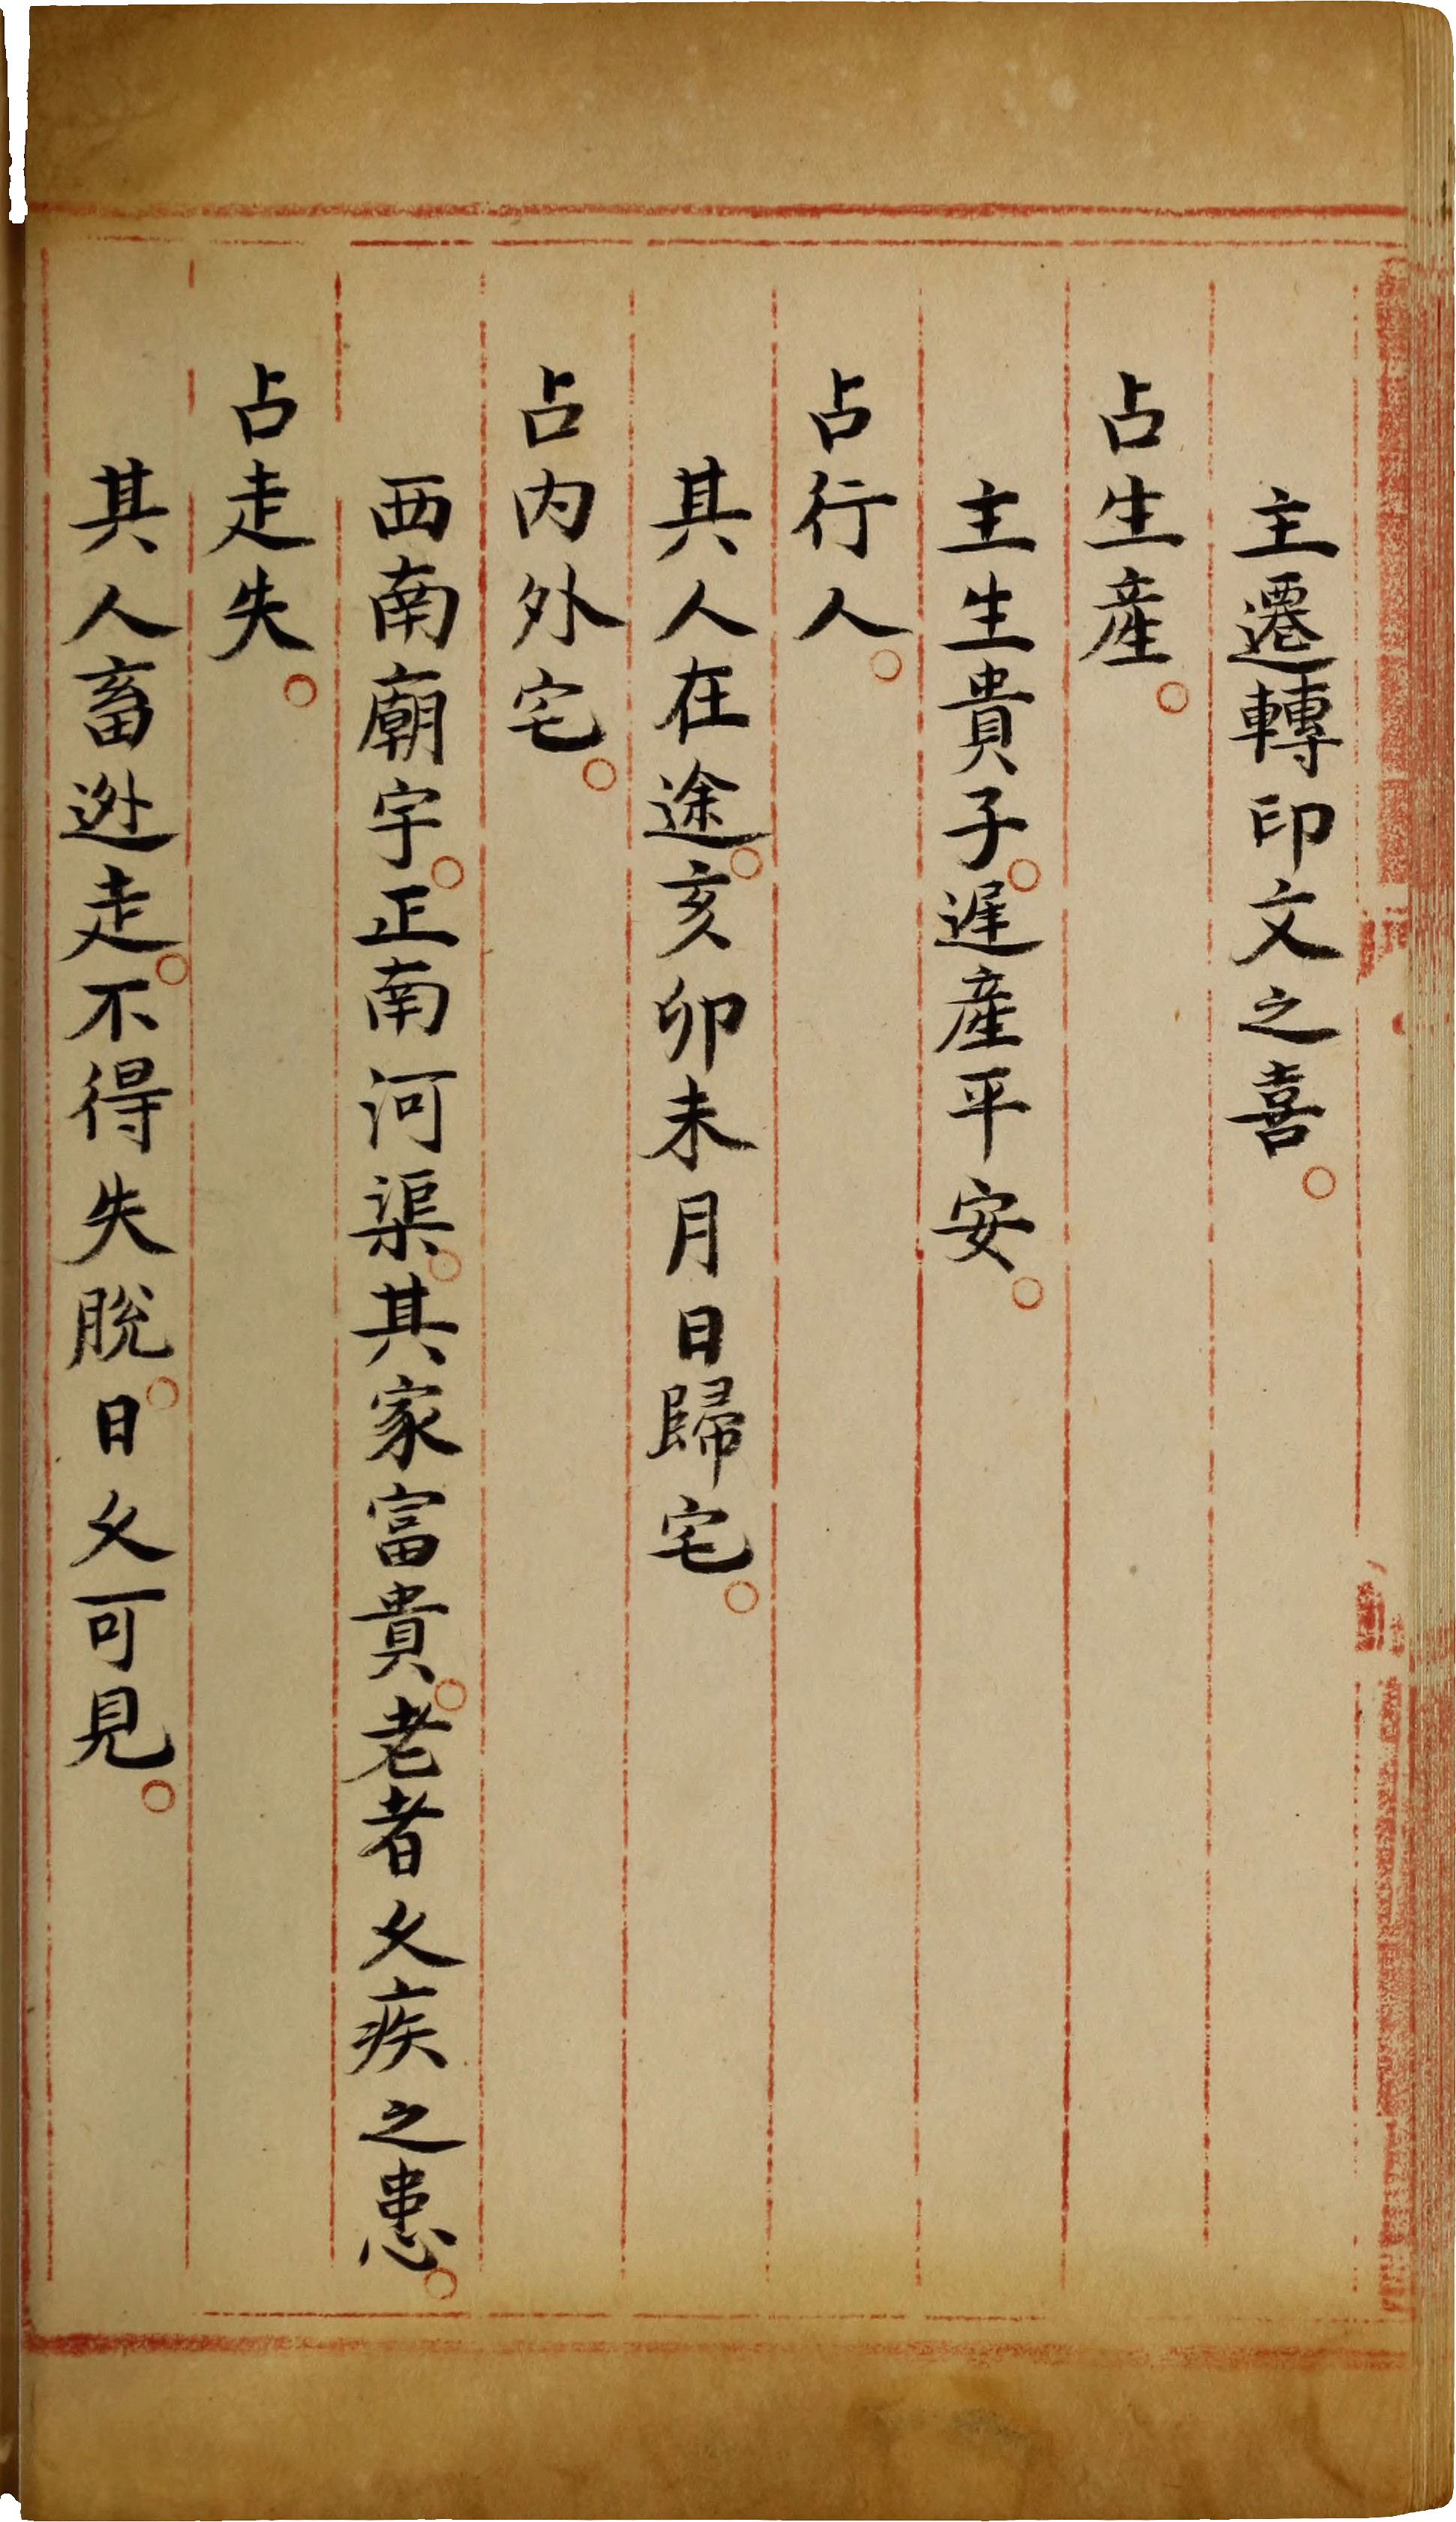 主遷轉印文之喜。
占生産。
主生貴子。遲產平安。
占行人。
其人在途。亥卯未月日歸宅。
占內外宅。
西南廟宇。正南河渠。其家富貴。老者久疾之患。
占走失。
其人畜逃走。不得失脫。日久可見。